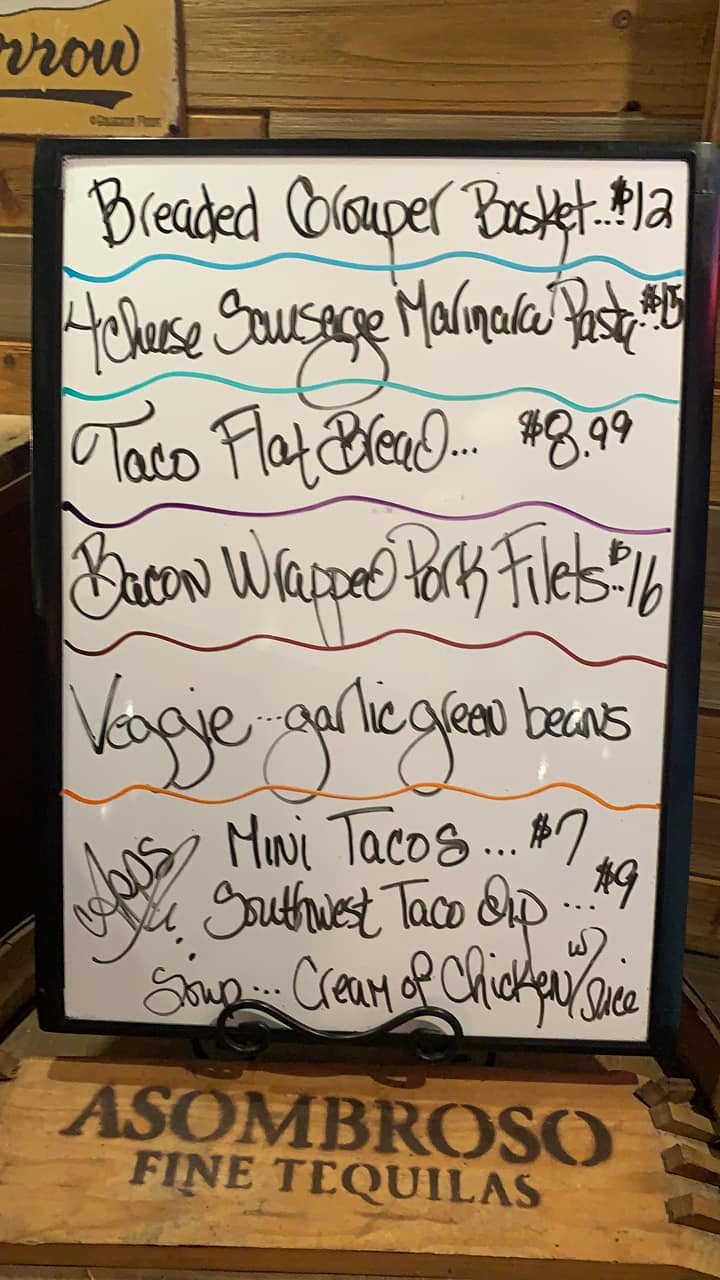 rrow
Breaded Grouper Basket...$12
4 Cheese Sauserge Marinara Pasta..$15
Taco Flat Bread... $8.99
Bacon Wrapped Pork Filets..$16
Veggie...garlic green beans
Apps Mini Tacos...$7
Southwest Taco Dip...$9
Soup... Cream of Chicken w/
ASOMBROSO
FINE TEQUILAS